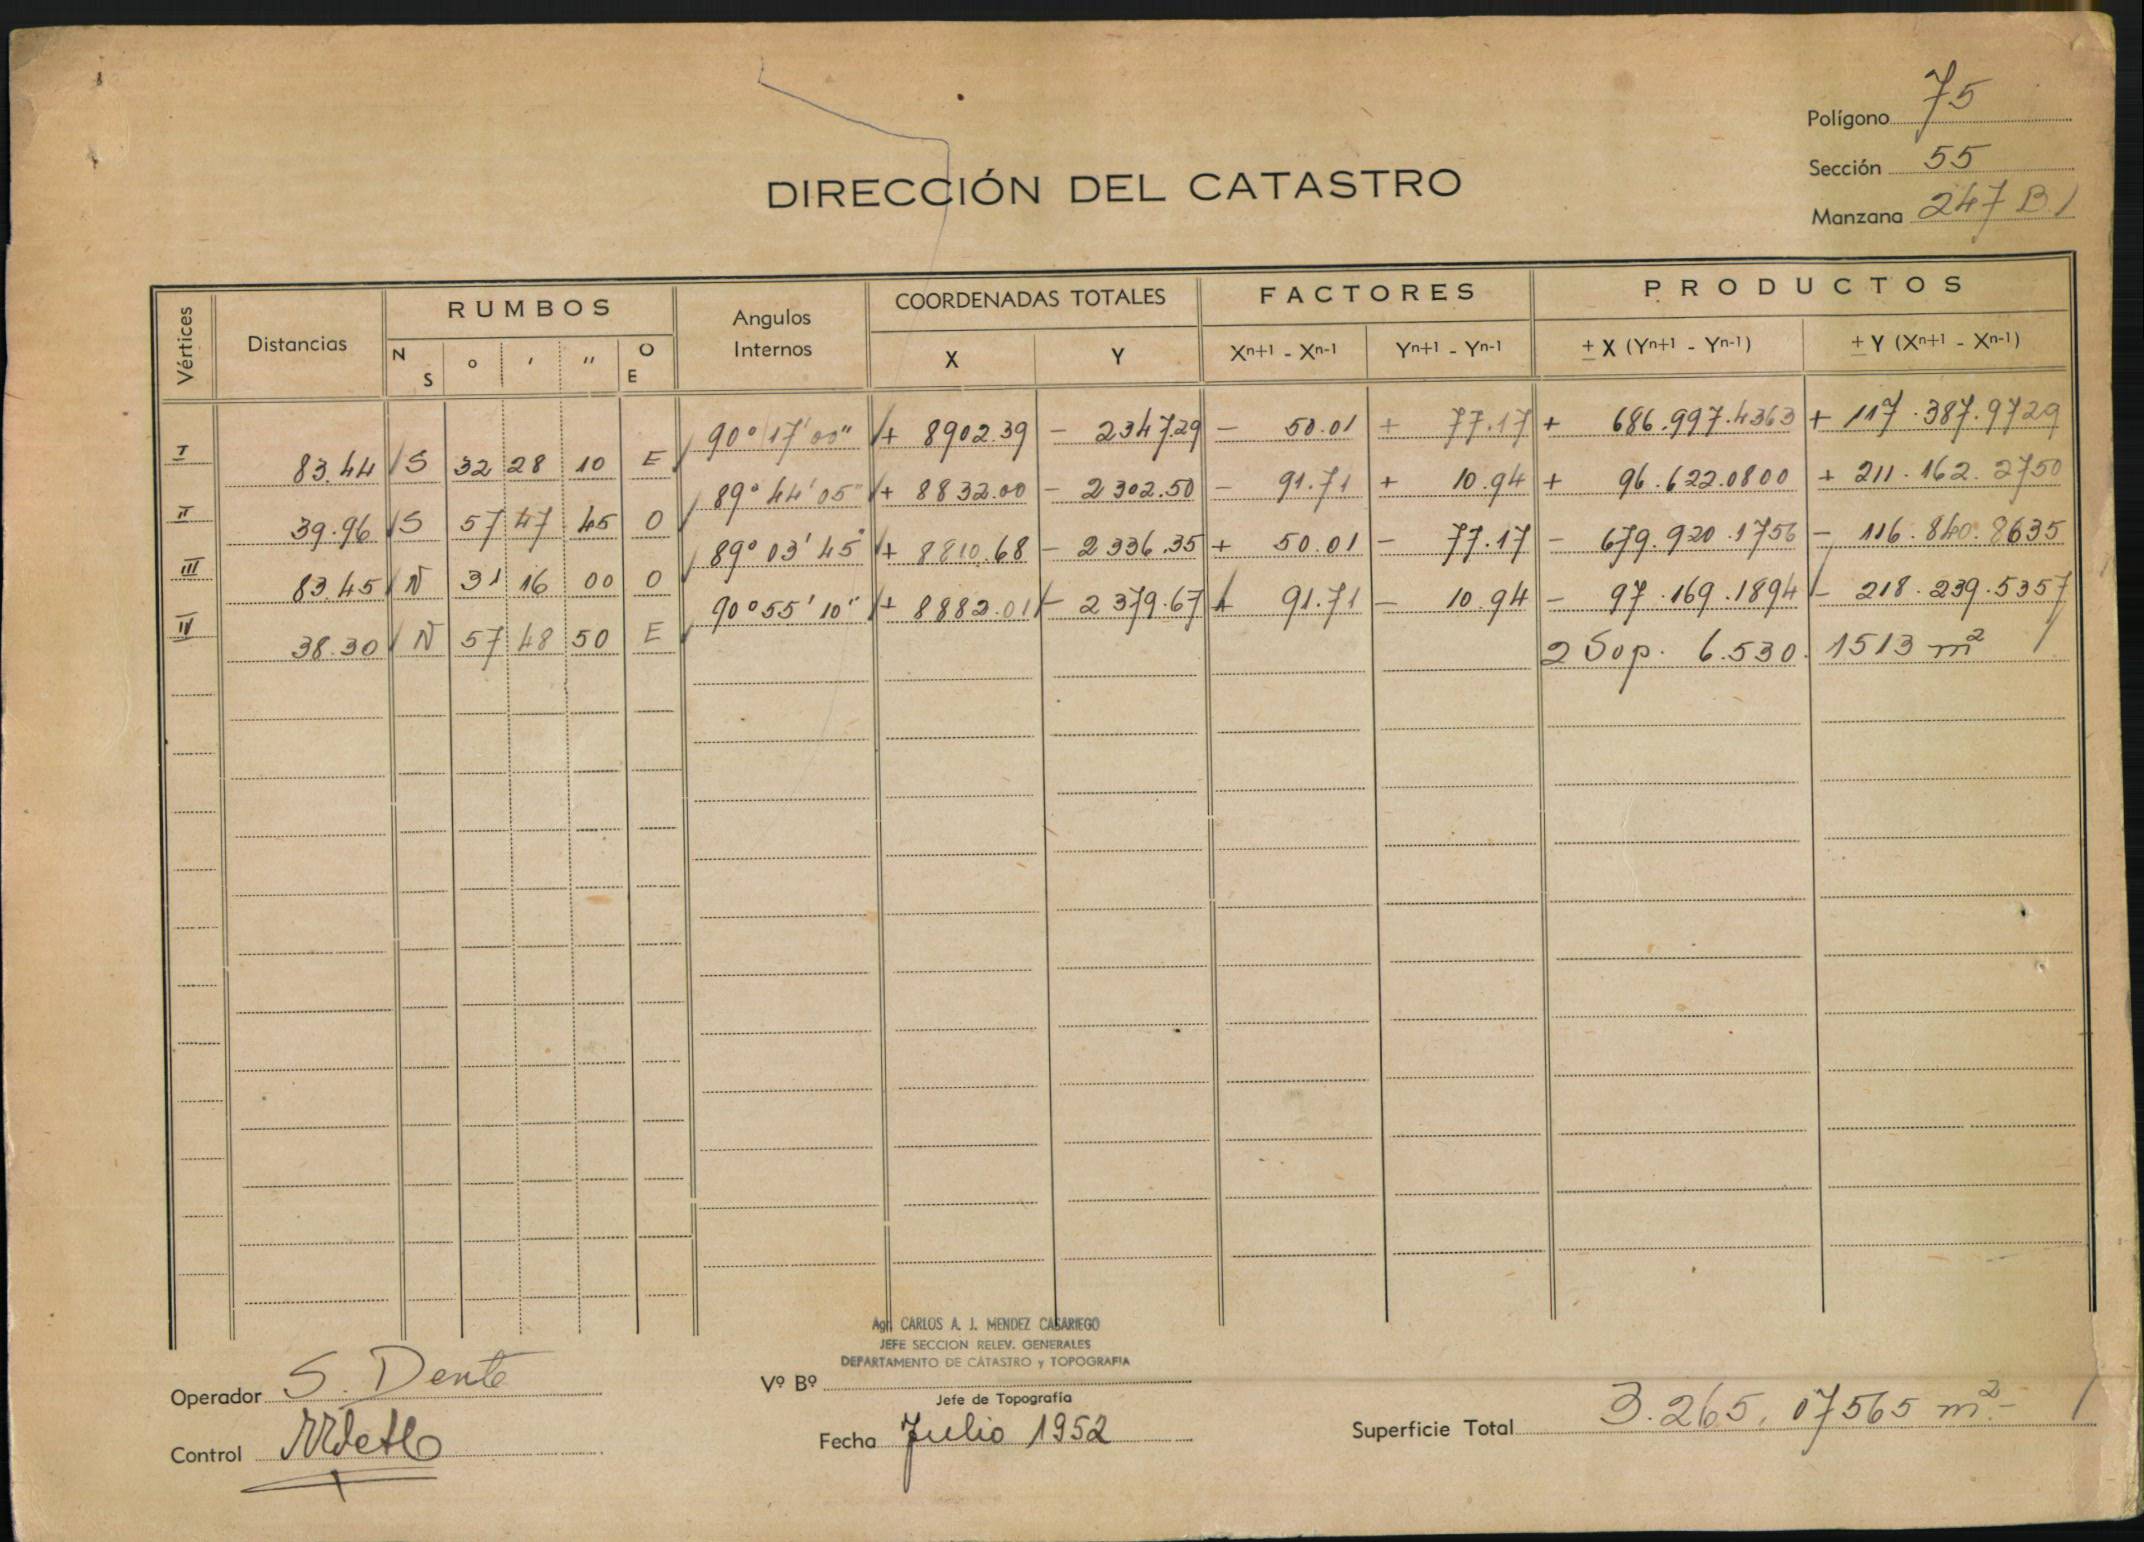 Polígono 75
Sección 55
Manzana 247 B.1
DIRECCIÓN DEL CATASTRO
Vértices Distancias RUMBOS Angulos Internos COORDENADAS TOTALES FACTORES PRODUCTOS
N S ° ' " O E X Y Xn+1 - Xn-1 Yn+1 - Yn-1 ± X (Yn+1 - Yn-1) ± Y (Xn+1 - Xn-1)
90° 17' 00" + 8902.39 - 2347.29 - 50.01 + 77.17 + 686.997.4363 + 117.387.9729
I 83.44 S 32 28 10 E
89° 44' 05" + 8832.00 - 2302.50 - 91.71 + 10.94 + 96.622.0800 + 211.162.2750
II 39.96 S 57 47 45 O
89° 03' 45" + 8810.68 - 2336.35 + 50.01 - 77.17 - 679.920.1756 - 116.840.8635
III 83.45 N 31 16 00 O
90° 55' 10" + 8882.01 - 2379.67 + 91.71 - 10.94 - 97.169.1894 - 218.239.5357
IV 38.30 N 57 48 50 E
2 Sup. 6.530.1513 m²
Agr. CARLOS A. J. MENDEZ CASARIEGO
JEFE SECCION RELEV. GENERALES
DEPARTAMENTO DE CATASTRO y TOPOGRAFIA
Operador S. Dente
Vº Bº
Jefe de Topografía
Control
Fecha Julio 1952
Superficie Total 3.265,07565 m².-